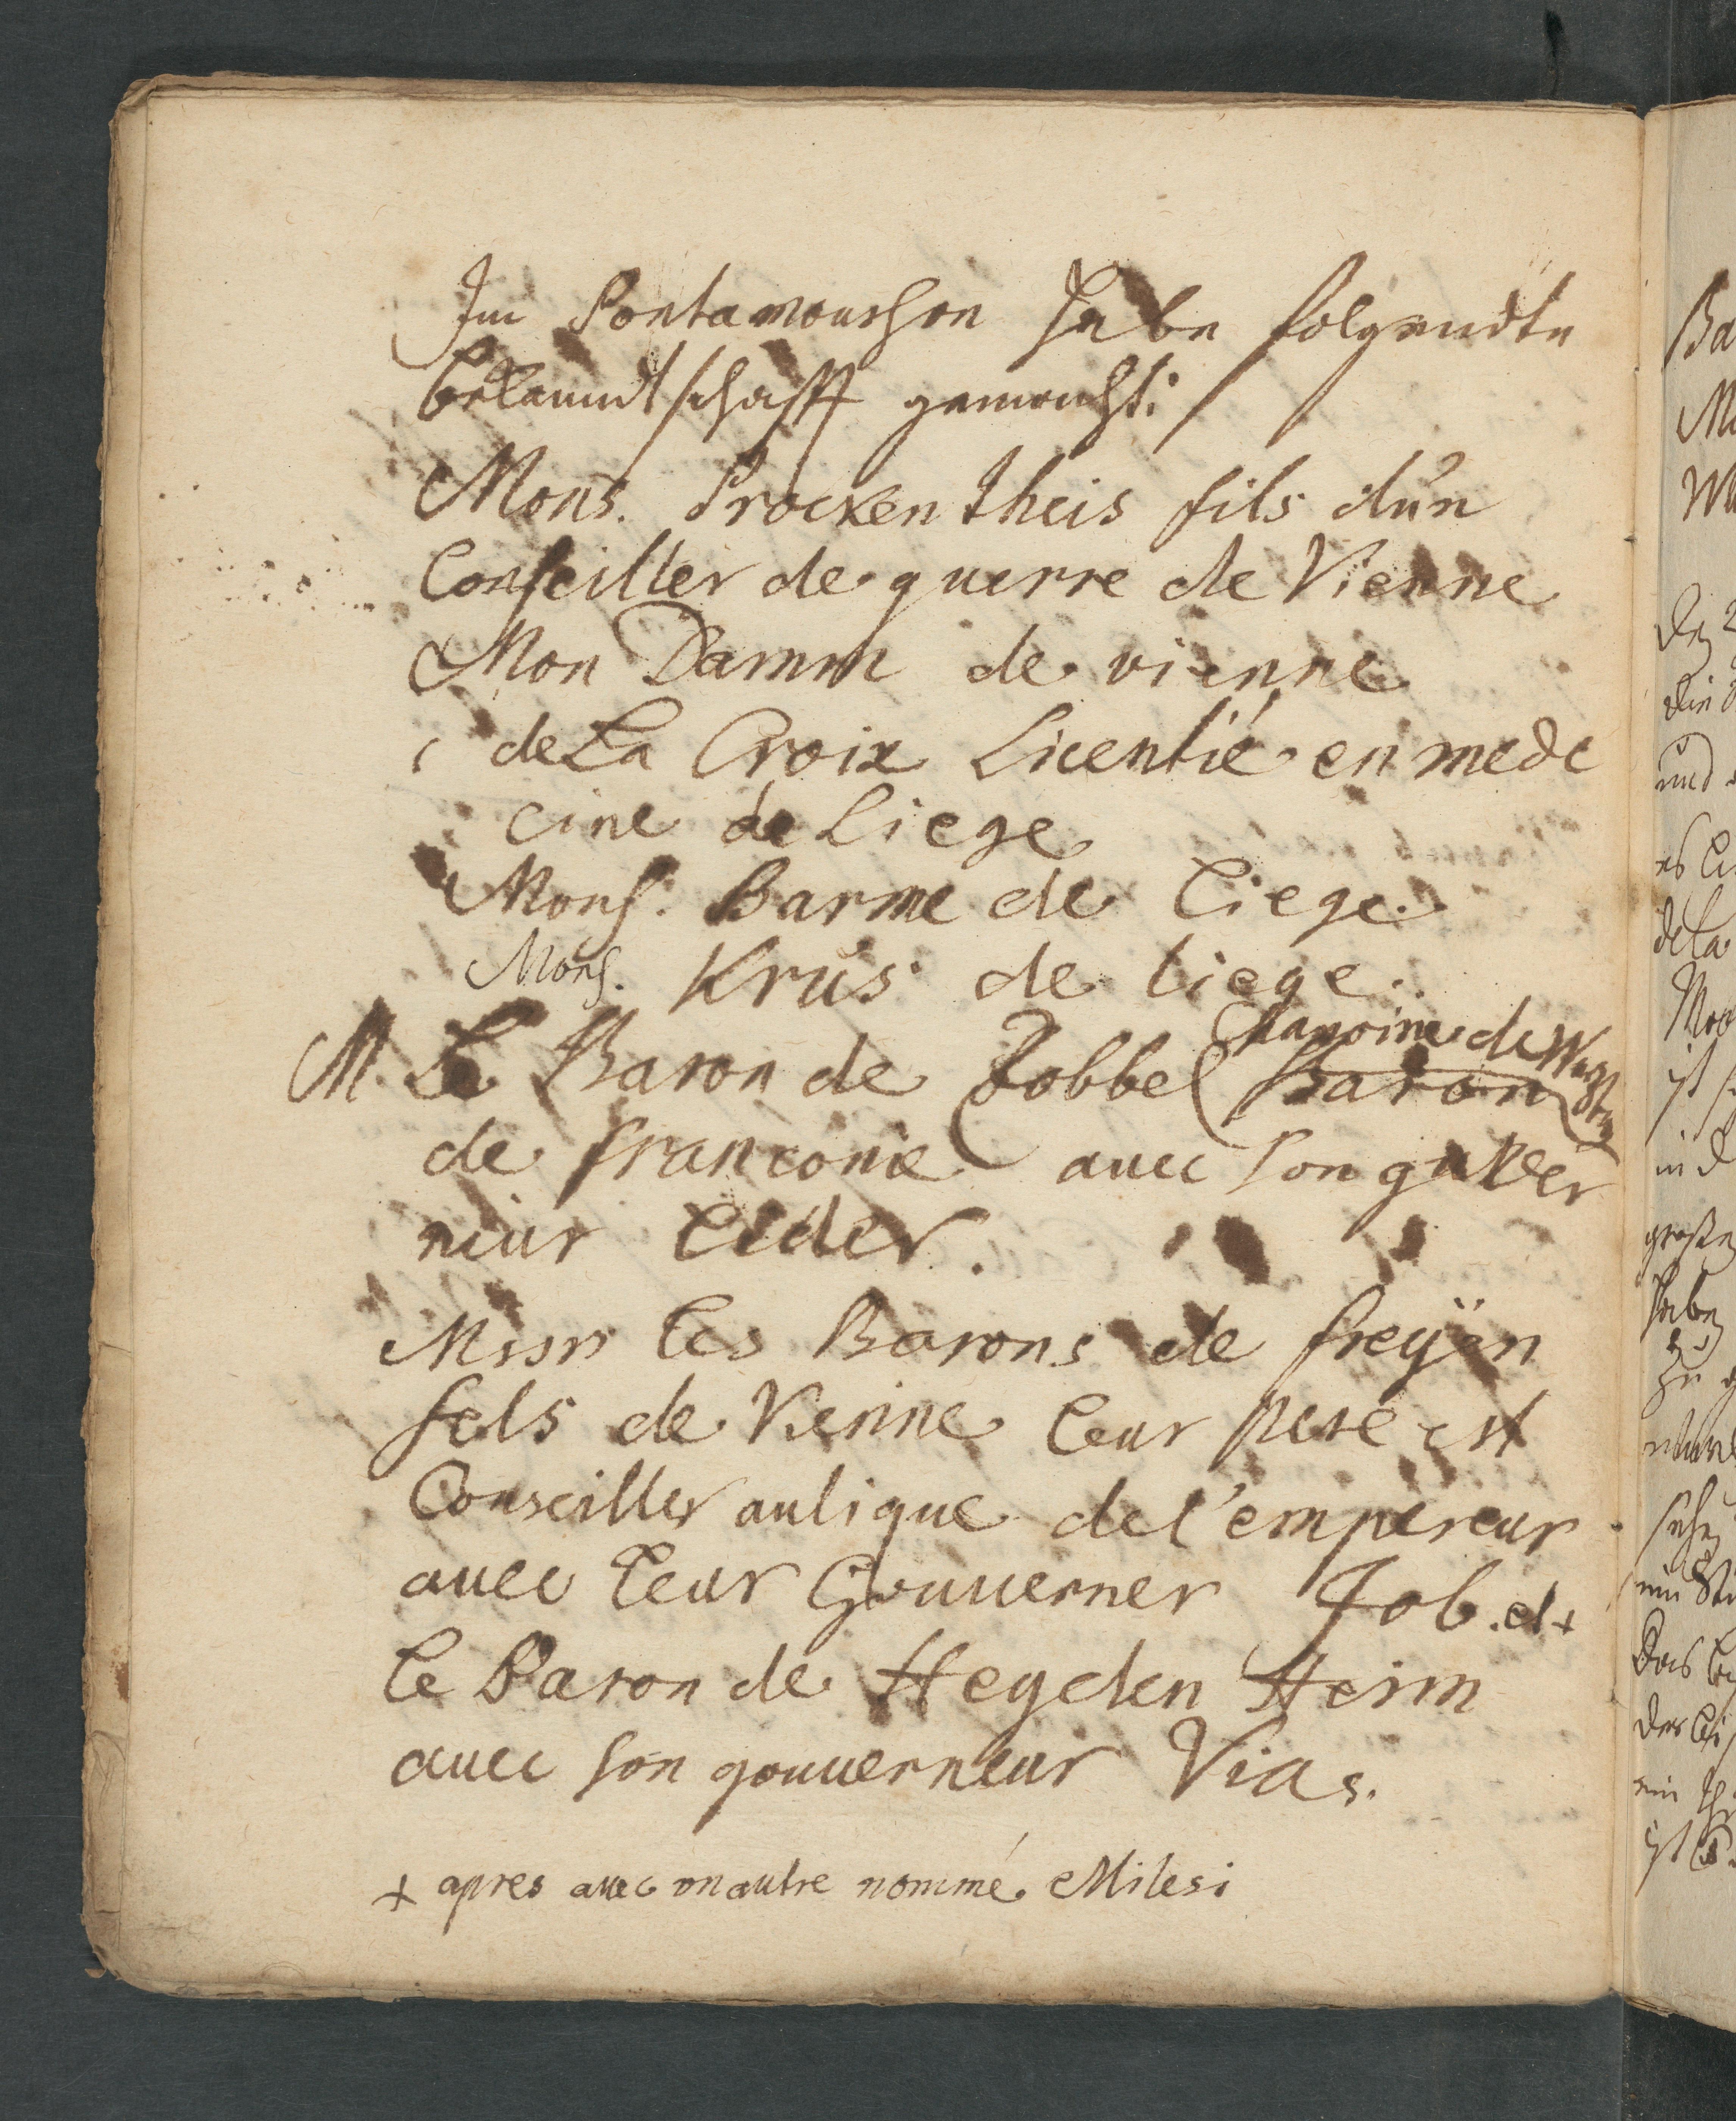 Im Pontamouson habe folgendte
bekandtschafft gemacht:
Mons. Procken theis fils dún
Conseiller de guerre de Vienne
Mon Damm de vienne
de La Croix Licentié en mede
cine de Liege
Mons. Barme de Liege.
Mons. Krús de liege.
Chanoine de
M. Le Baron de Zobbel Baron
de franconie avec son guver
neur Eider.
Messrs les Barons de freÿen
fels de Vienne leur pere est
Conseiller aulique de l'empereur
avec leur Gouverner Job. et +
le Baron de Heyden Heim
avec son gouverneur Vias.
+ apres avec un autre nommé Milesi